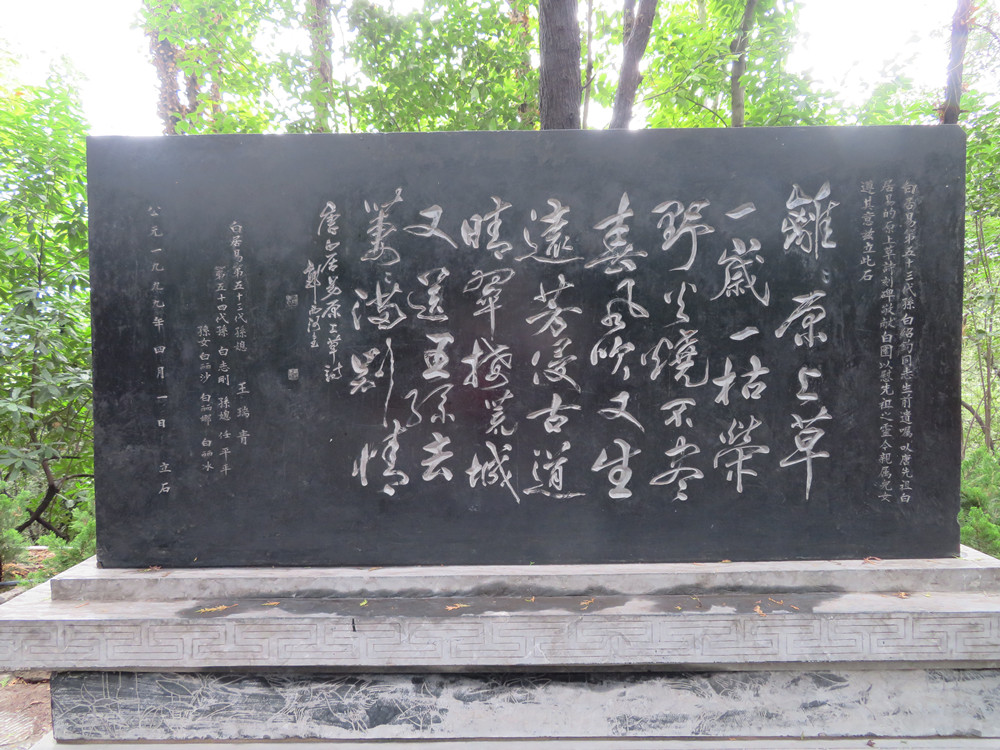 白居易第五十三代孫白紹鈞同志生前遺囑以唐先祖白
居易的原上草詩刻碑敬獻白園以慰先祖之靈今親属兒女
遵其意敬立此石
離〻原上草
一歲一枯榮
野火燒不盡
春風吹又生
遠芳侵古道
晴翠接荒城
又送王孫去
萋〻滿別情
唐白居易原上草詩
白居易第五十三代孫媳 王瑞青
第五十四代孫 白志剛 孫媳 任平平
孫女 白丽沙 白丽娜 白丽冰
公元一九九九年四月一日 立石